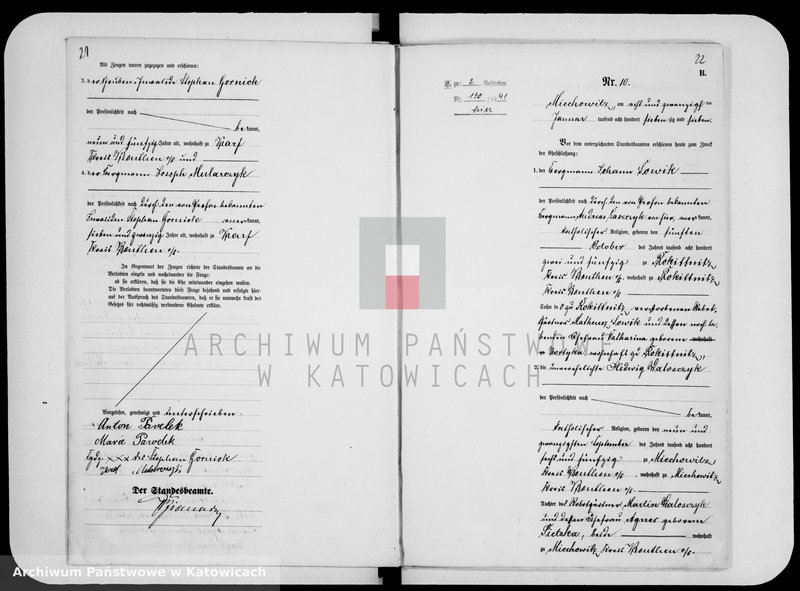 21
Als Zeugen waren zugezogen und erschienen:
3. der Gruben-Invalide Stephan Gornick
der Persönlichkeit nach
bekannt,
neun und fünfzig Jahre alt, wohnhaft zu Karf
Kreis Beuthen o/s. und
4. der Bergmann Joseph Mularczyk
der Persönlichkeit nach durch den von Person bekannten
Invaliden Stephan Gornick anerkannt,
sieben und zwanzig Jahre alt, wohnhaft zu Karf
Kreis Beuthen o/s.
In Gegenwart der Zeugen richtete der Standesbeamte an die
Verlobten einzeln und nacheinander die Frage:
ob sie erklären, daß sie die Ehe miteinander eingehen wollen.
Die Verlobten beantworteten diese Frage bejahend und erfolgte hier-
auf der Ausspruch des Standesbeamten, daß er sie nunmehr kraft des
Gesetzes für rechtmäßig verbundene Eheleute erkläre.
Vorgelesen, genehmigt und unterschrieben.
Anton Pavelek
Marie
xxx des Stephan Gornick
Der Standesbeamte.
22
B.
Nr. 10.
Nr. 130 41
hier
Miechowitz, am acht und zwanzigsten
Januar tausend acht hundert sieben zig und sieben.
Vor dem unterzeichneten Standesbeamten erschienen heute zum Zweck
der Eheschließung:
1. der Bergmann Johann Sowik
der Persönlichkeit nach durch den von Person bekannten
Bergmann Andreas anerkannt,
katholischer Religion, geboren den fünften
October des Jahres tausend acht hundert
zwei und fünfzig zu Rokittnitz
Kreis Beuthen o/s. wohnhaft zu Rokittnitz
Kreis Beuthen o/s
Sohn des zu Rokittnitz verstorbenen Robot-
gärtners Matheus Sowik und dessen noch le-
benden Ehefrau Katharina geborene wohnhaft
wohnhaft zu Rokittnitz,
2. die unverehelichte Hedwig Kalosczyk
der Persönlichkeit nach
bekannt,
katholischer Religion, geboren den neun und
zwanzigsten September des Jahres tausend acht hundert
sechs und fünfzig zu Miechowitz
Kreis Beuthen o/s. wohnhaft zu Miechowitz
Kreis Beuthen o/s.
Tochter des Robotgärtner Martin Kalosczyk
und dessen Ehefrau Agnes geborene
beide wohnhaft
zu Miechowitz, Kreis Beuthen o/s.
ARCHIWUM PAŃSTWOWE
W KATOWICACH
Archiwum Państwowe w Katowicach